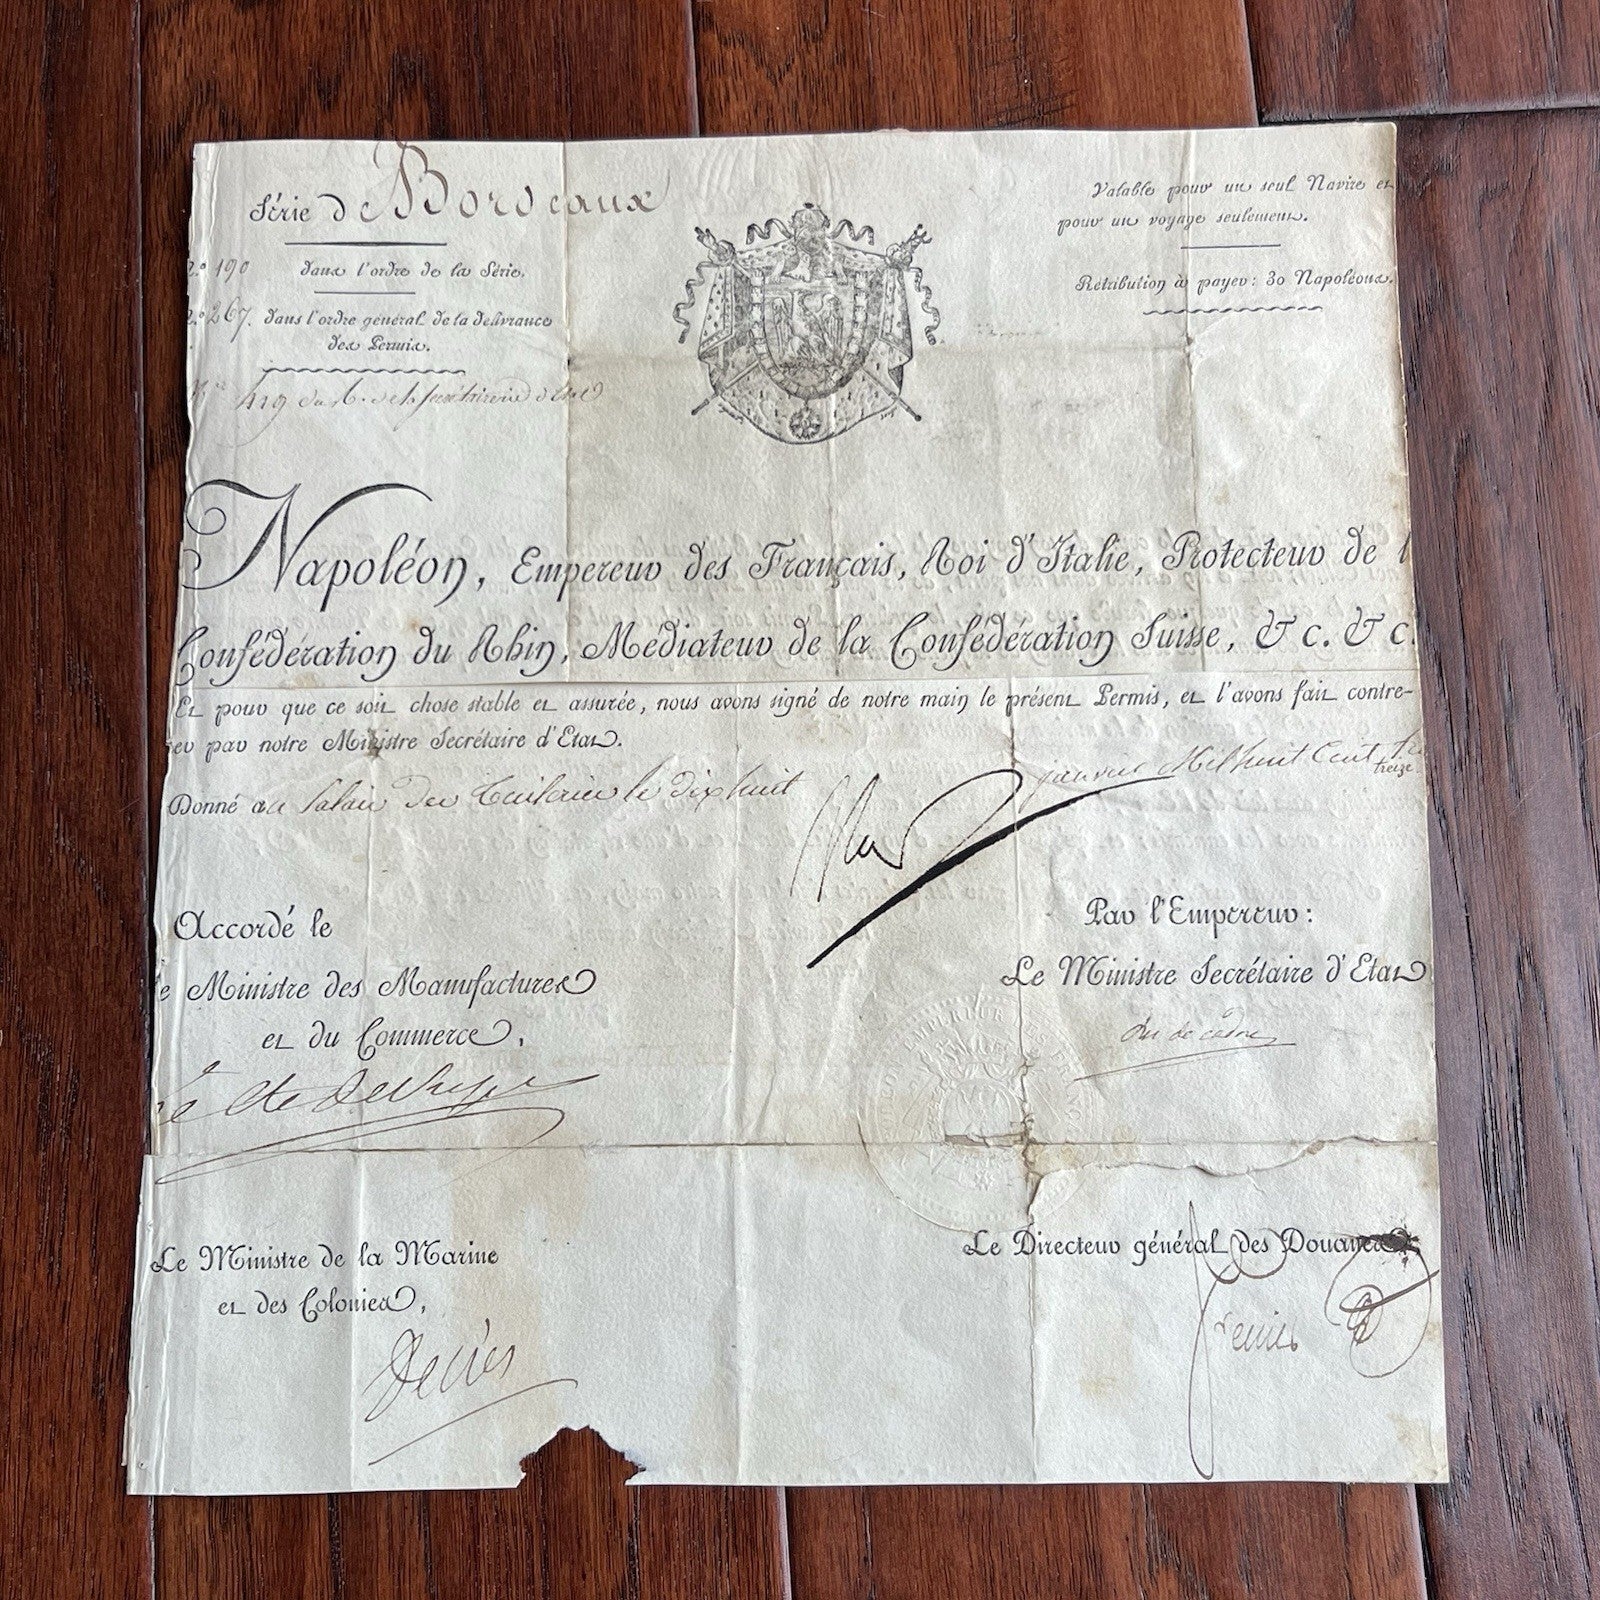 Série de Bordeaux
N.º 190 dans l'ordre de la Série.
N.º 267. dans l'ordre général de la délivrance
des Permis.
519 du M. de la Secrétairerie d'Etat
Valable pour un seul Navire et
pour un voyage seulement.
Rétribution à payer : 30 Napoléons.
Napoléon, Empereur des Français, Roi d'Italie, Protecteur de l
Confédération du Rhin, Médiateur de la Confédération Suisse, & c. & c.
Et pour que ce soit chose stable et assurée, nous avons signé de notre main le présent Permis, et l'avons fait contre-
er par notre Ministre Secrétaire d'Etat.
Donné au Palais des Tuileries le dix huit janvier Mil huit Cent
treize
Nap
Accordé le
e Ministre des Manufactures
et du Commerce,
Par l'Empereur :
Le Ministre Secrétaire d'Etat
duc de cadore
Le Ministre de la Marine
et des Colonies,
Decrès
Le Directeur général des Douanes
ferrier